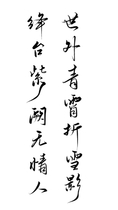 世外青霄折雪影
绛台紫阙无情人